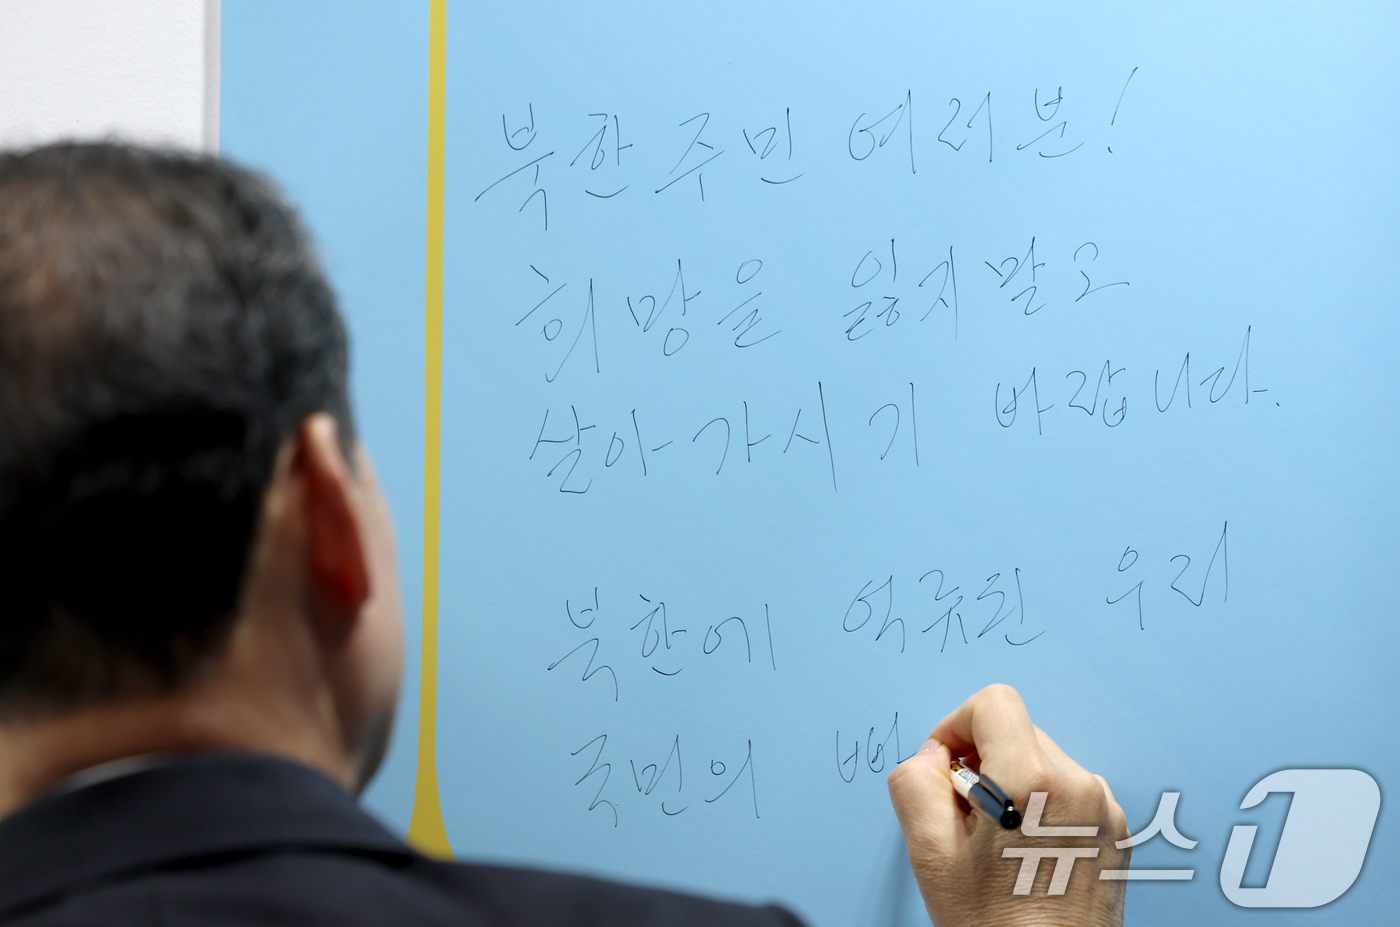 북한 주민 여러분!
희망을 잃지 말고
살아가시기 바랍니다.
북한에 억류된 우리
국민의
뉴스1